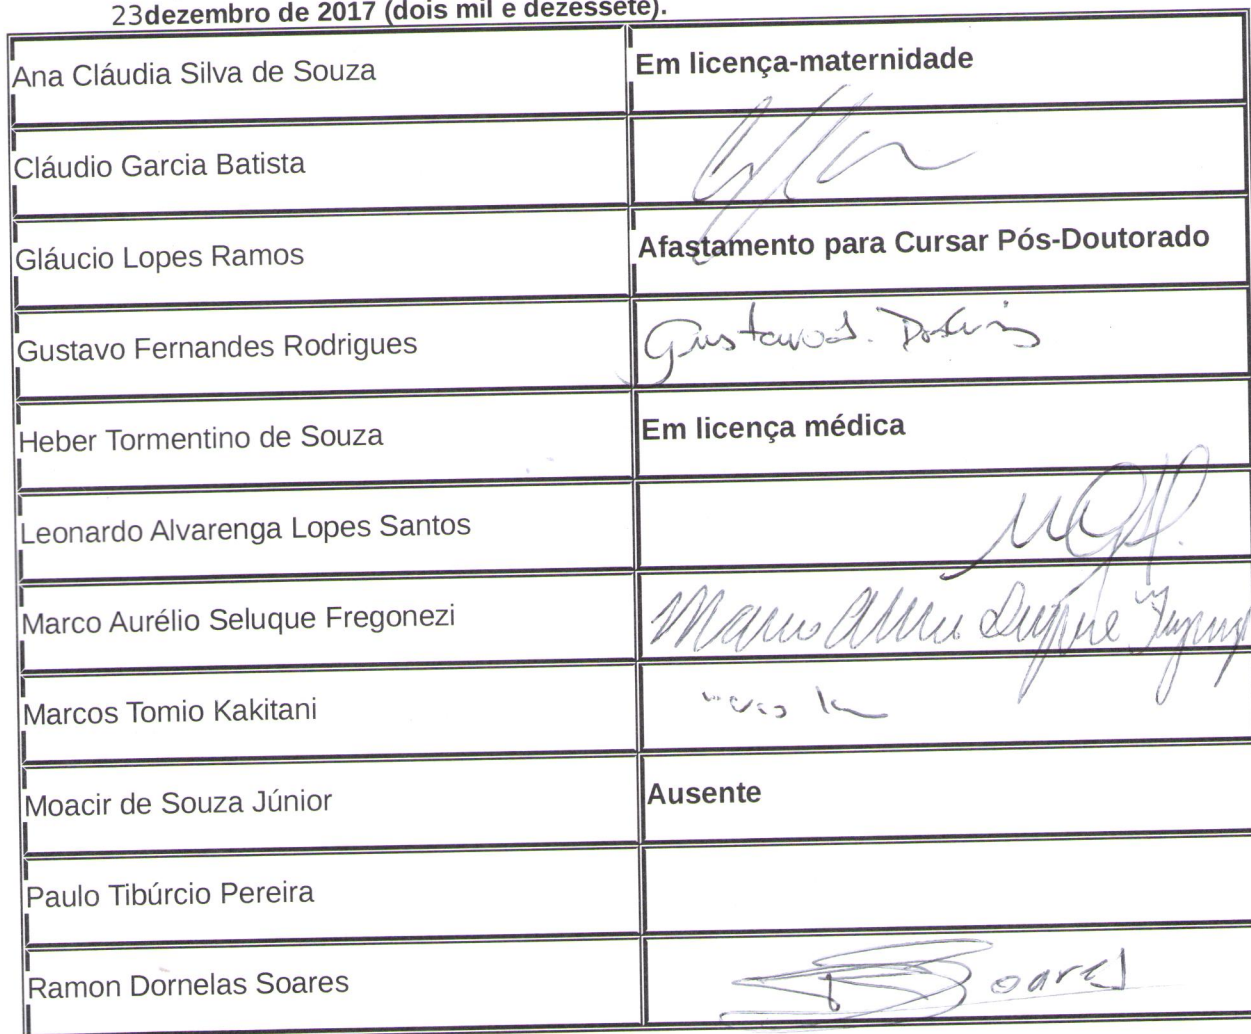 23dezembro de 2017 (dois mil e dezessete).
Ana Cláudia Silva de Souza Em licença-maternidade
Cláudio Garcia Batista
Gláucio Lopes Ramos Afastamento para Cursar Pós-Doutorado
Gustavo Fernandes Rodrigues Gustavo
Heber Tormentino de Souza Em licença médica
Leonardo Alvarenga Lopes Santos
Marco Aurélio Seluque Fregonezi Marco
Marcos Tomio Kakitani
Moacir de Souza Júnior Ausente
Paulo Tibúrcio Pereira
Ramon Dornelas Soares Soares